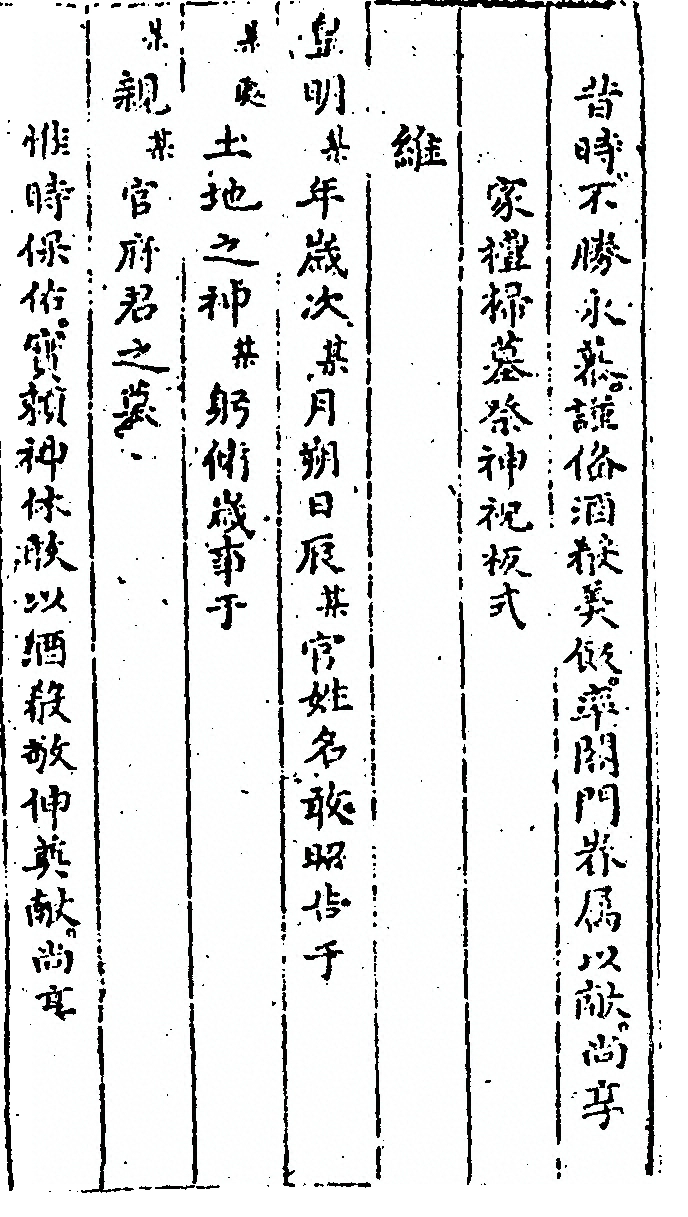 昔時不勝永慕謹俻酒殽奠儀率闔門眷属以献尚享
家禮掃墓祭神祝板式
維
皇明某年歲次某月朔日辰某官姓名敢昭告于
某處土地之神某躬俻歲事于
某親某官府君之墓
惟時保佑實賴神休敢以酒殽敬伸奠献尚享